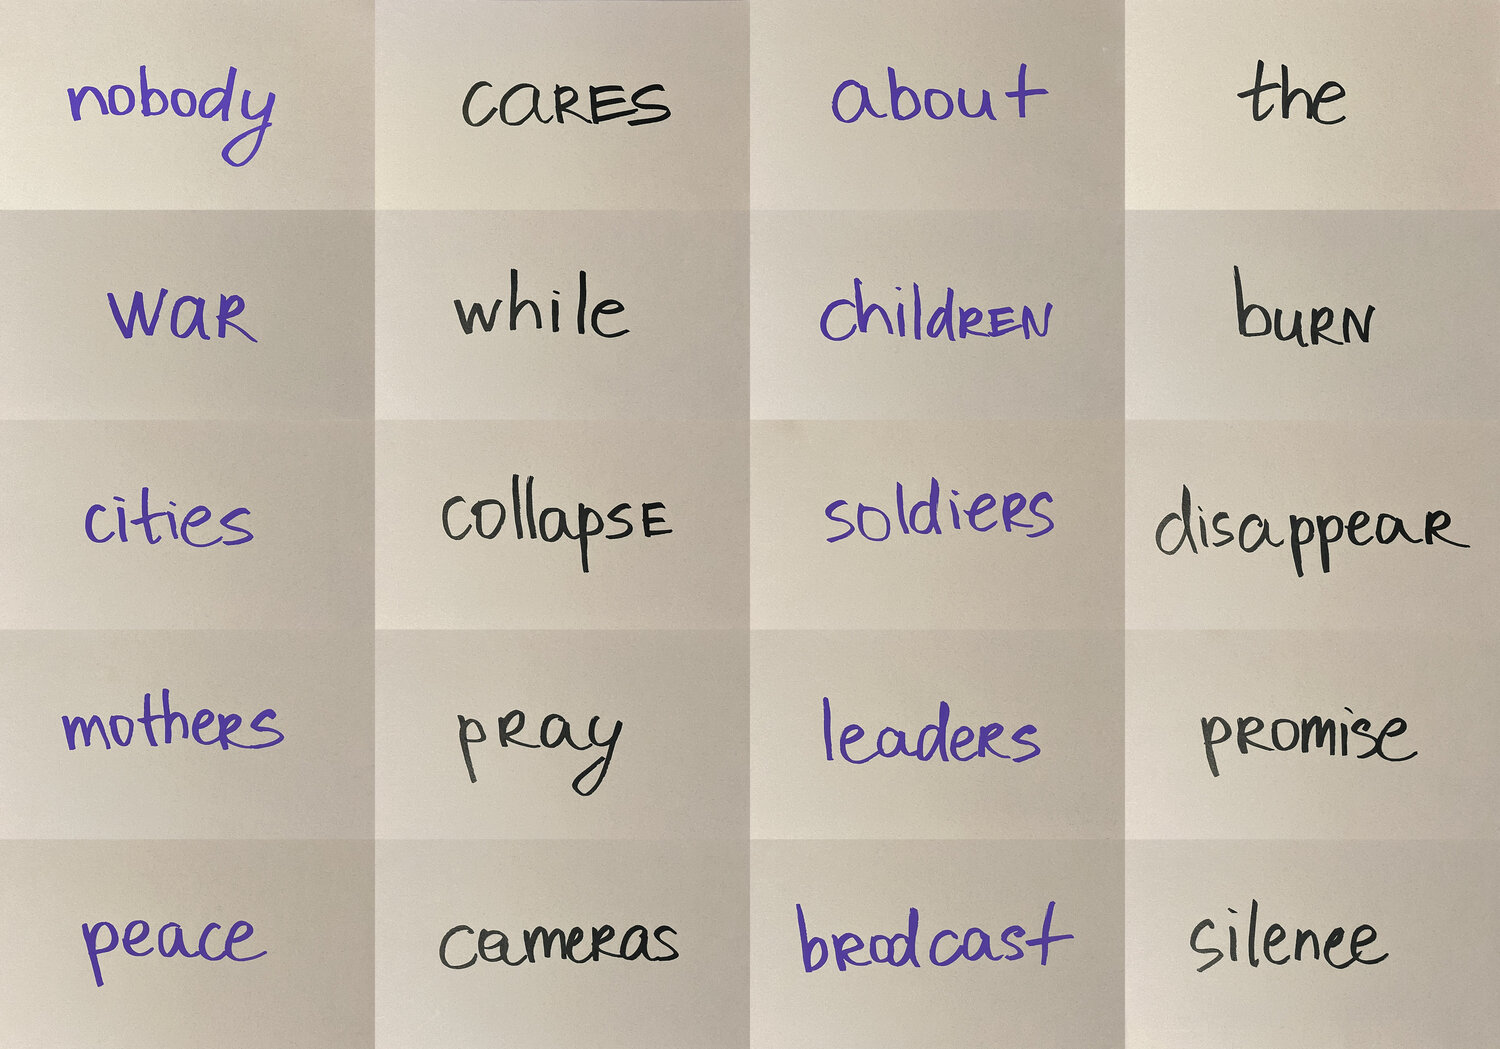 nobody caRES about the
waR while childREN buRN
cities collapsE soldieRs disappeaR
motheRs pRay leadeRs pRomise
peace cameRas bRodcast silenee